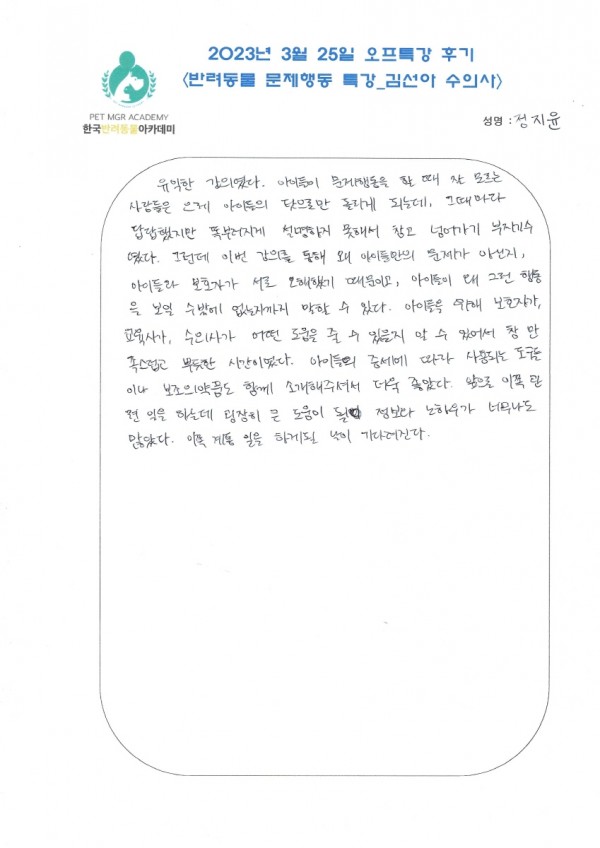 2023년 3월 25일 오프특강 후기
<반려동물 문제행동 특강_김선아 수의사>
PET MGR ACADEMY
한국반려동물아카데미
성명 : 정지윤
유익한 강의였다. 아이들이 문제행동을 할 때 잘 모르는
사람들은 으레 아이들의 탓으로만 돌리게 되는데, 그때마다
답답했지만 똑부러지게 설명하지 못해서 참고 넘어가기 부지기수
였다. 그런데 이번 강의를 통해 왜 아이들만의 문제가 아닌지,
아이들과 보호자가 서로 오해했기 때문이고, 아이들이 왜 그런 행동
을 보일 수밖에 없는지까지 말할 수 있다. 아이들을 위해 보호자가,
교육사가, 수의사가 어떤 도움을 줄 수 있을지 알 수 있어서 참 만
족스럽고 뿌듯한 시간이였다. 아이들의 증세에 따라 사용되는 도구들
이나 보조의약품도 함께 소개해주셔서 더욱 좋았다. 앞으로 이쪽 관
련 일을 하는데 굉장히 큰 도움이 될 정보와 노하우가 너무나도
많았다. 이쪽 계통 일을 하게될 날이 기다려진다.